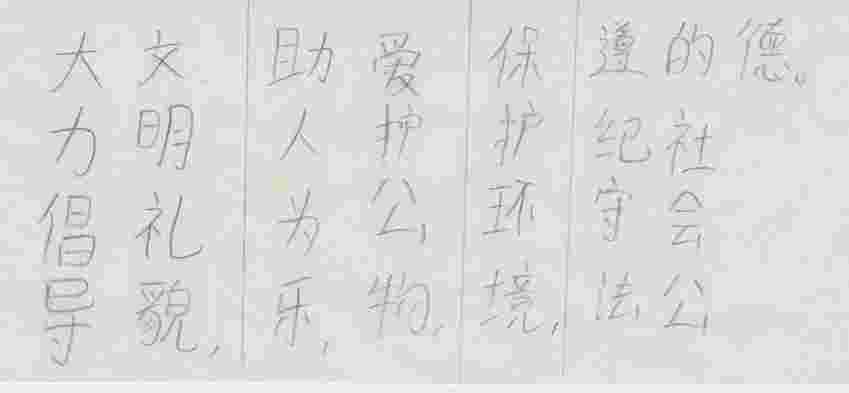 大力倡导
文明礼貌,
助人为乐,
爱护公物,
保护环境,
遵纪守法
的社会公
德。